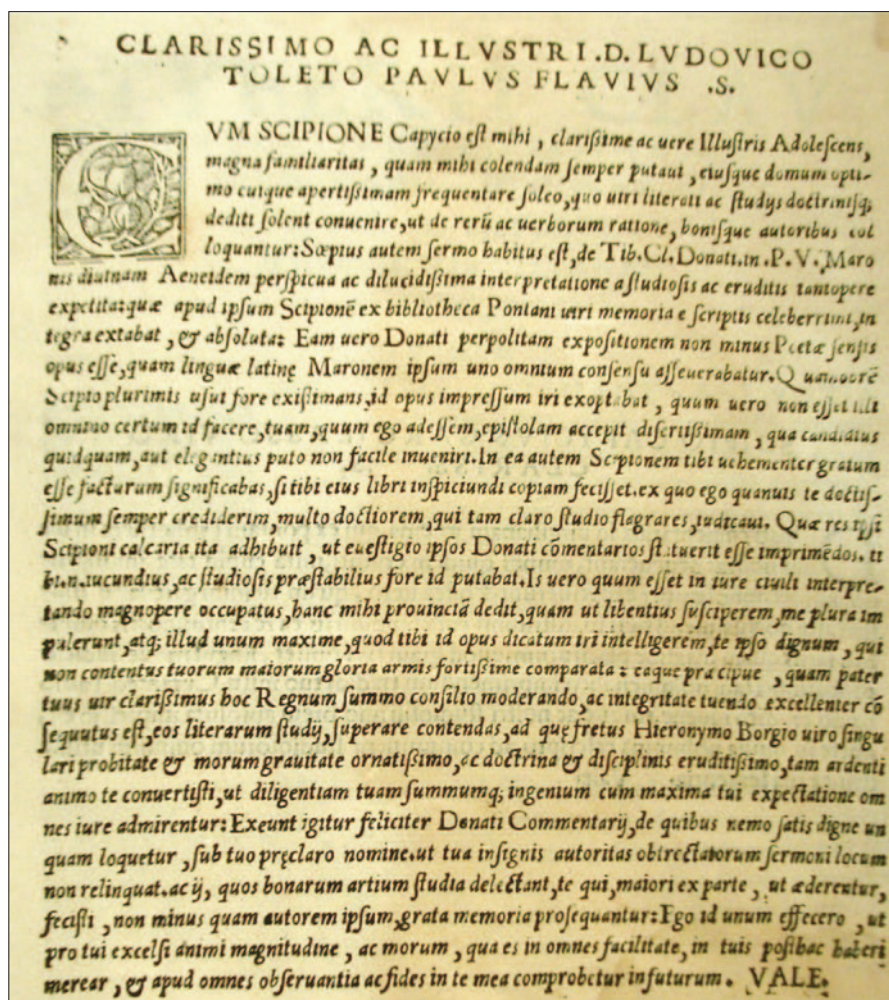 CLARISSIMO AC ILLVSTRI .D. LVDOVICO
TOLETO PAVLVS FLAVIVS .S.
CVM SCIPIONE Capycio eſt mihi, clariſſime ac uere Illuſtris Adoleſcens,
magna familiaritas, quam mihi colendam ſemper putaui, eiuſque domum opti-
mo cuique apertiſſimam frequentare ſoleo, quo uiri literati ac ſtudijs doctriniſq;
dediti ſolent conuenire, ut de rerū ac uerborum ratione, boniſque autoribus col
loquantur: Sæpius autem ſermo habitus eſt, de Tib. Cl. Donati. in. P. V. Maro
nis diuinam Aeneidem perſpicua ac dilucidiſſima interpretatione a ſtudioſis ac eruditis tantopere
expetita: quæ apud ipſum Scipionē ex bibliotheca Pontani uiri memoria e ſcriptis celeberrimi, in
tegra extabat, & abſoluta: Eam uero Donati perpolitam expoſitionem non minus Poetæ ſenſis
opus eſſe, quam linguæ latinę Maronem ipſum uno omnium conſenſu aſſeuerabatur. Quamobrē
Scipio plurimis uſui fore exiſtimans, id opus impreſſum iri exoptabat, quum uero non eſſet illi
omnino certum id facere, tuam, quum ego adeſſem, epiſtolam accepit diſertiſſimam, qua candidius
quidquam, aut elegantius puto non facile inueniri. In ea autem Scipionem tibi uehementer gratum
eſſe facturum ſignificabas, ſi tibi eius libri inſpiciundi copiam feciſſet. ex quo ego quanuis te doctiſ-
ſimum ſemper crediderim, multo doctiorem, qui tam claro ſtudio flagrares, iudicaui. Quæ res ipſi
Scipioni calcaria ita adhibuit, ut eueſtigio ipſos Donati cōmentarios ſtatuerit eſſe imprimēdos. ti
iucundius, ac ſtudioſis præſtabilius fore id putabat. Is uero quum eſſet in iure ciuili interpre-
tando magnopere occupatus, hanc mihi prouinciā dedit, quam ut libentius ſuſciperem, me plura im
pulerunt, atq; illud unum maxime, quod tibi id opus dicatum iri intelligerem, te ipſo dignum, qui
non contentus tuorum maiorum gloria armis fortiſſime comparata: eaque præcipue, quam pater
tuus uir clariſſimus hoc Regnum ſummo conſilio moderando, ac integritate tuendo excellenter cō
ſequutus eſt, eos literarum ſtudijs, ſuperare contendas, ad quę fretus Hieronymo Borgio uiro ſingu
lari probitate & morum grauitate ornatiſſimo, ac doctrina & diſciplinis eruditiſſimo, tam ardenti
animo te conuertiſti, ut diligentiam tuam ſummumq; ingenium cum maxima tui expectatione om
nes iure admirentur: Exeunt igitur feliciter Donati Commentarij, de quibus nemo ſatis digne un
quam loquetur, ſub tuo pręclaro nomine. ut tua inſignis autoritas obtrectatorum ſermoni locum
non relinquat. ac ij, quos bonarum artium ſtudia delectant, te qui, maiori ex parte, ut æderentur,
feciſti, non minus quam autorem ipſum, grata memoria proſequantur: Ego id unum effecero, ut
pro tui excelſi animi magnitudine, ac morum, qua es in omnes facilitate, in tuis poſthac haberi
merear, & apud omnes obſeruantia ac fides in te mea comprobetur infuturum. VALE.